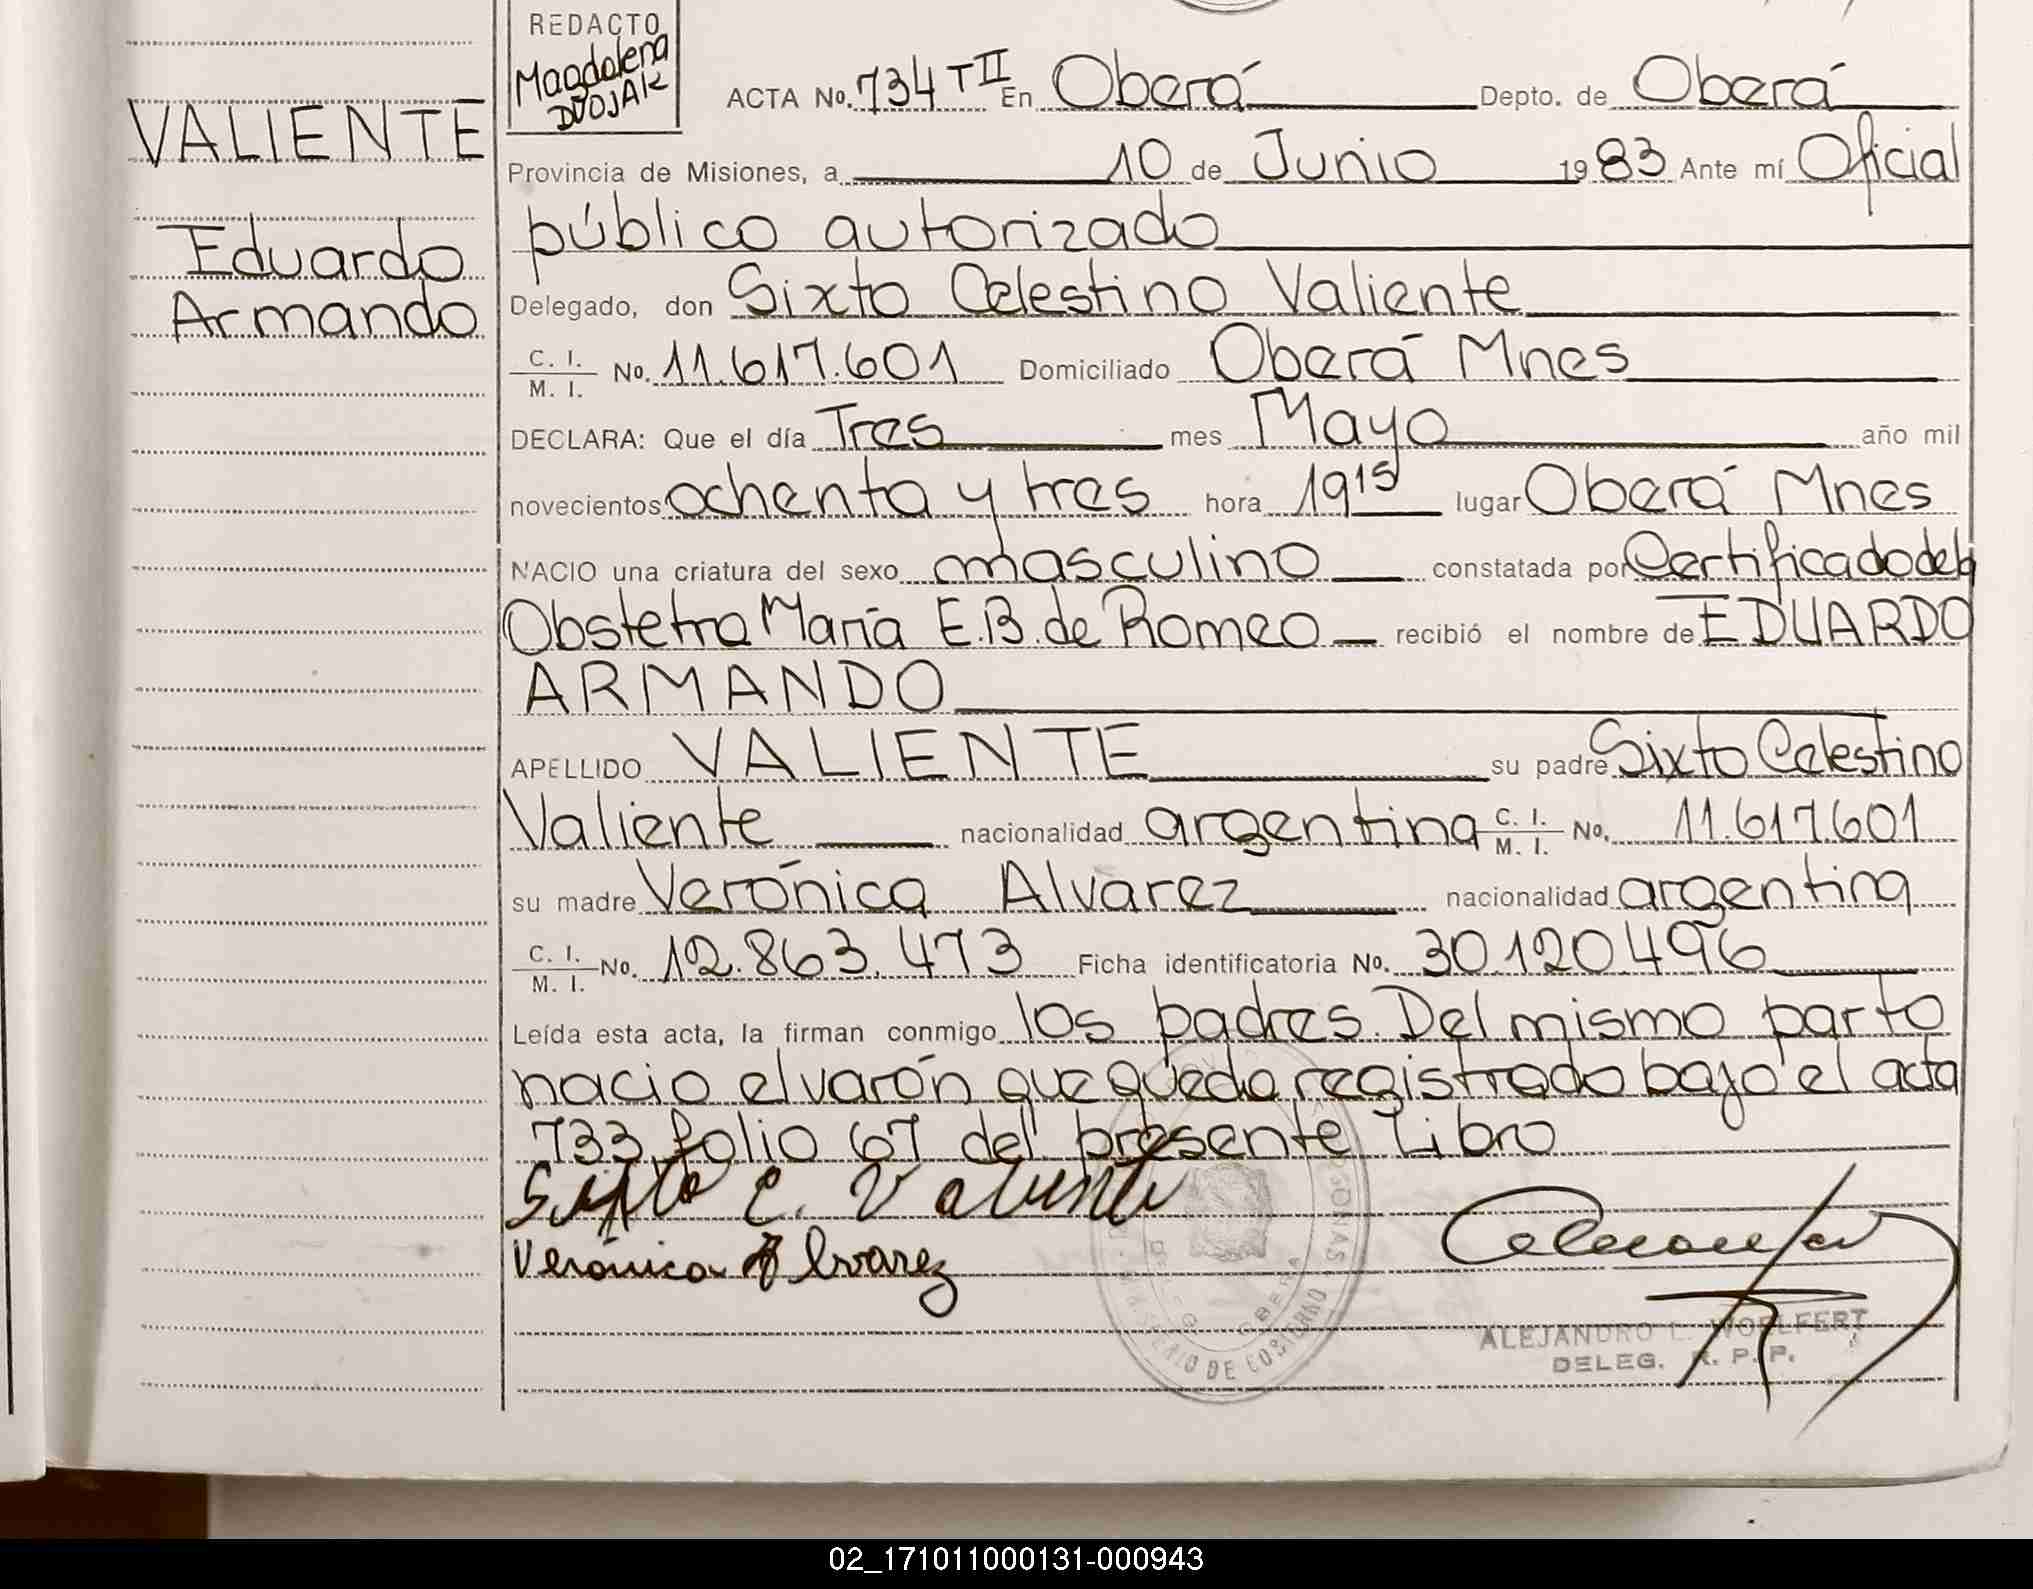 REDACTO
Magdalena
DVOJAK
VALIENTE
Eduardo
Armando
ACTA No. 734 T II En Oberá Depto. de Oberá
Provincia de Misiones, a 10 de Junio 1983 Ante mí Oficial
público autorizado
Delegado, don Sixto Celestino Valiente
C. I. / M. I. No. 11.617.601 Domiciliado Oberá Mnes
DECLARA: Que el día Tres mes Mayo año mil
novecientos ochenta y tres hora 19 15 lugar Oberá Mnes
NACIO una criatura del sexo masculino constatada por Certificado de la
Obstetra María E.B. de Romeo recibió el nombre de EDUARDO
ARMANDO
APELLIDO VALIENTE su padre Sixto Celestino
Valiente nacionalidad argentina C. I. / M. I. No. 11.617.601
su madre Verónica Alvarez nacionalidad argentina
C. I. / M. I. No. 12.863.473 Ficha identificatoria No. 30.120.496
Leída esta acta, la firman conmigo los padres. Del mismo parto
nacio el varón que quedo registrado bajo el acta
733 folio 67 del presente Libro
Sixto C. Valiente
Verónica Alvarez
ALEJANDRO L. WOELFERT
DELEG. R. P. P.
MINISTERIO DE GOBIERNO
OBERA
02_171011000131-000943